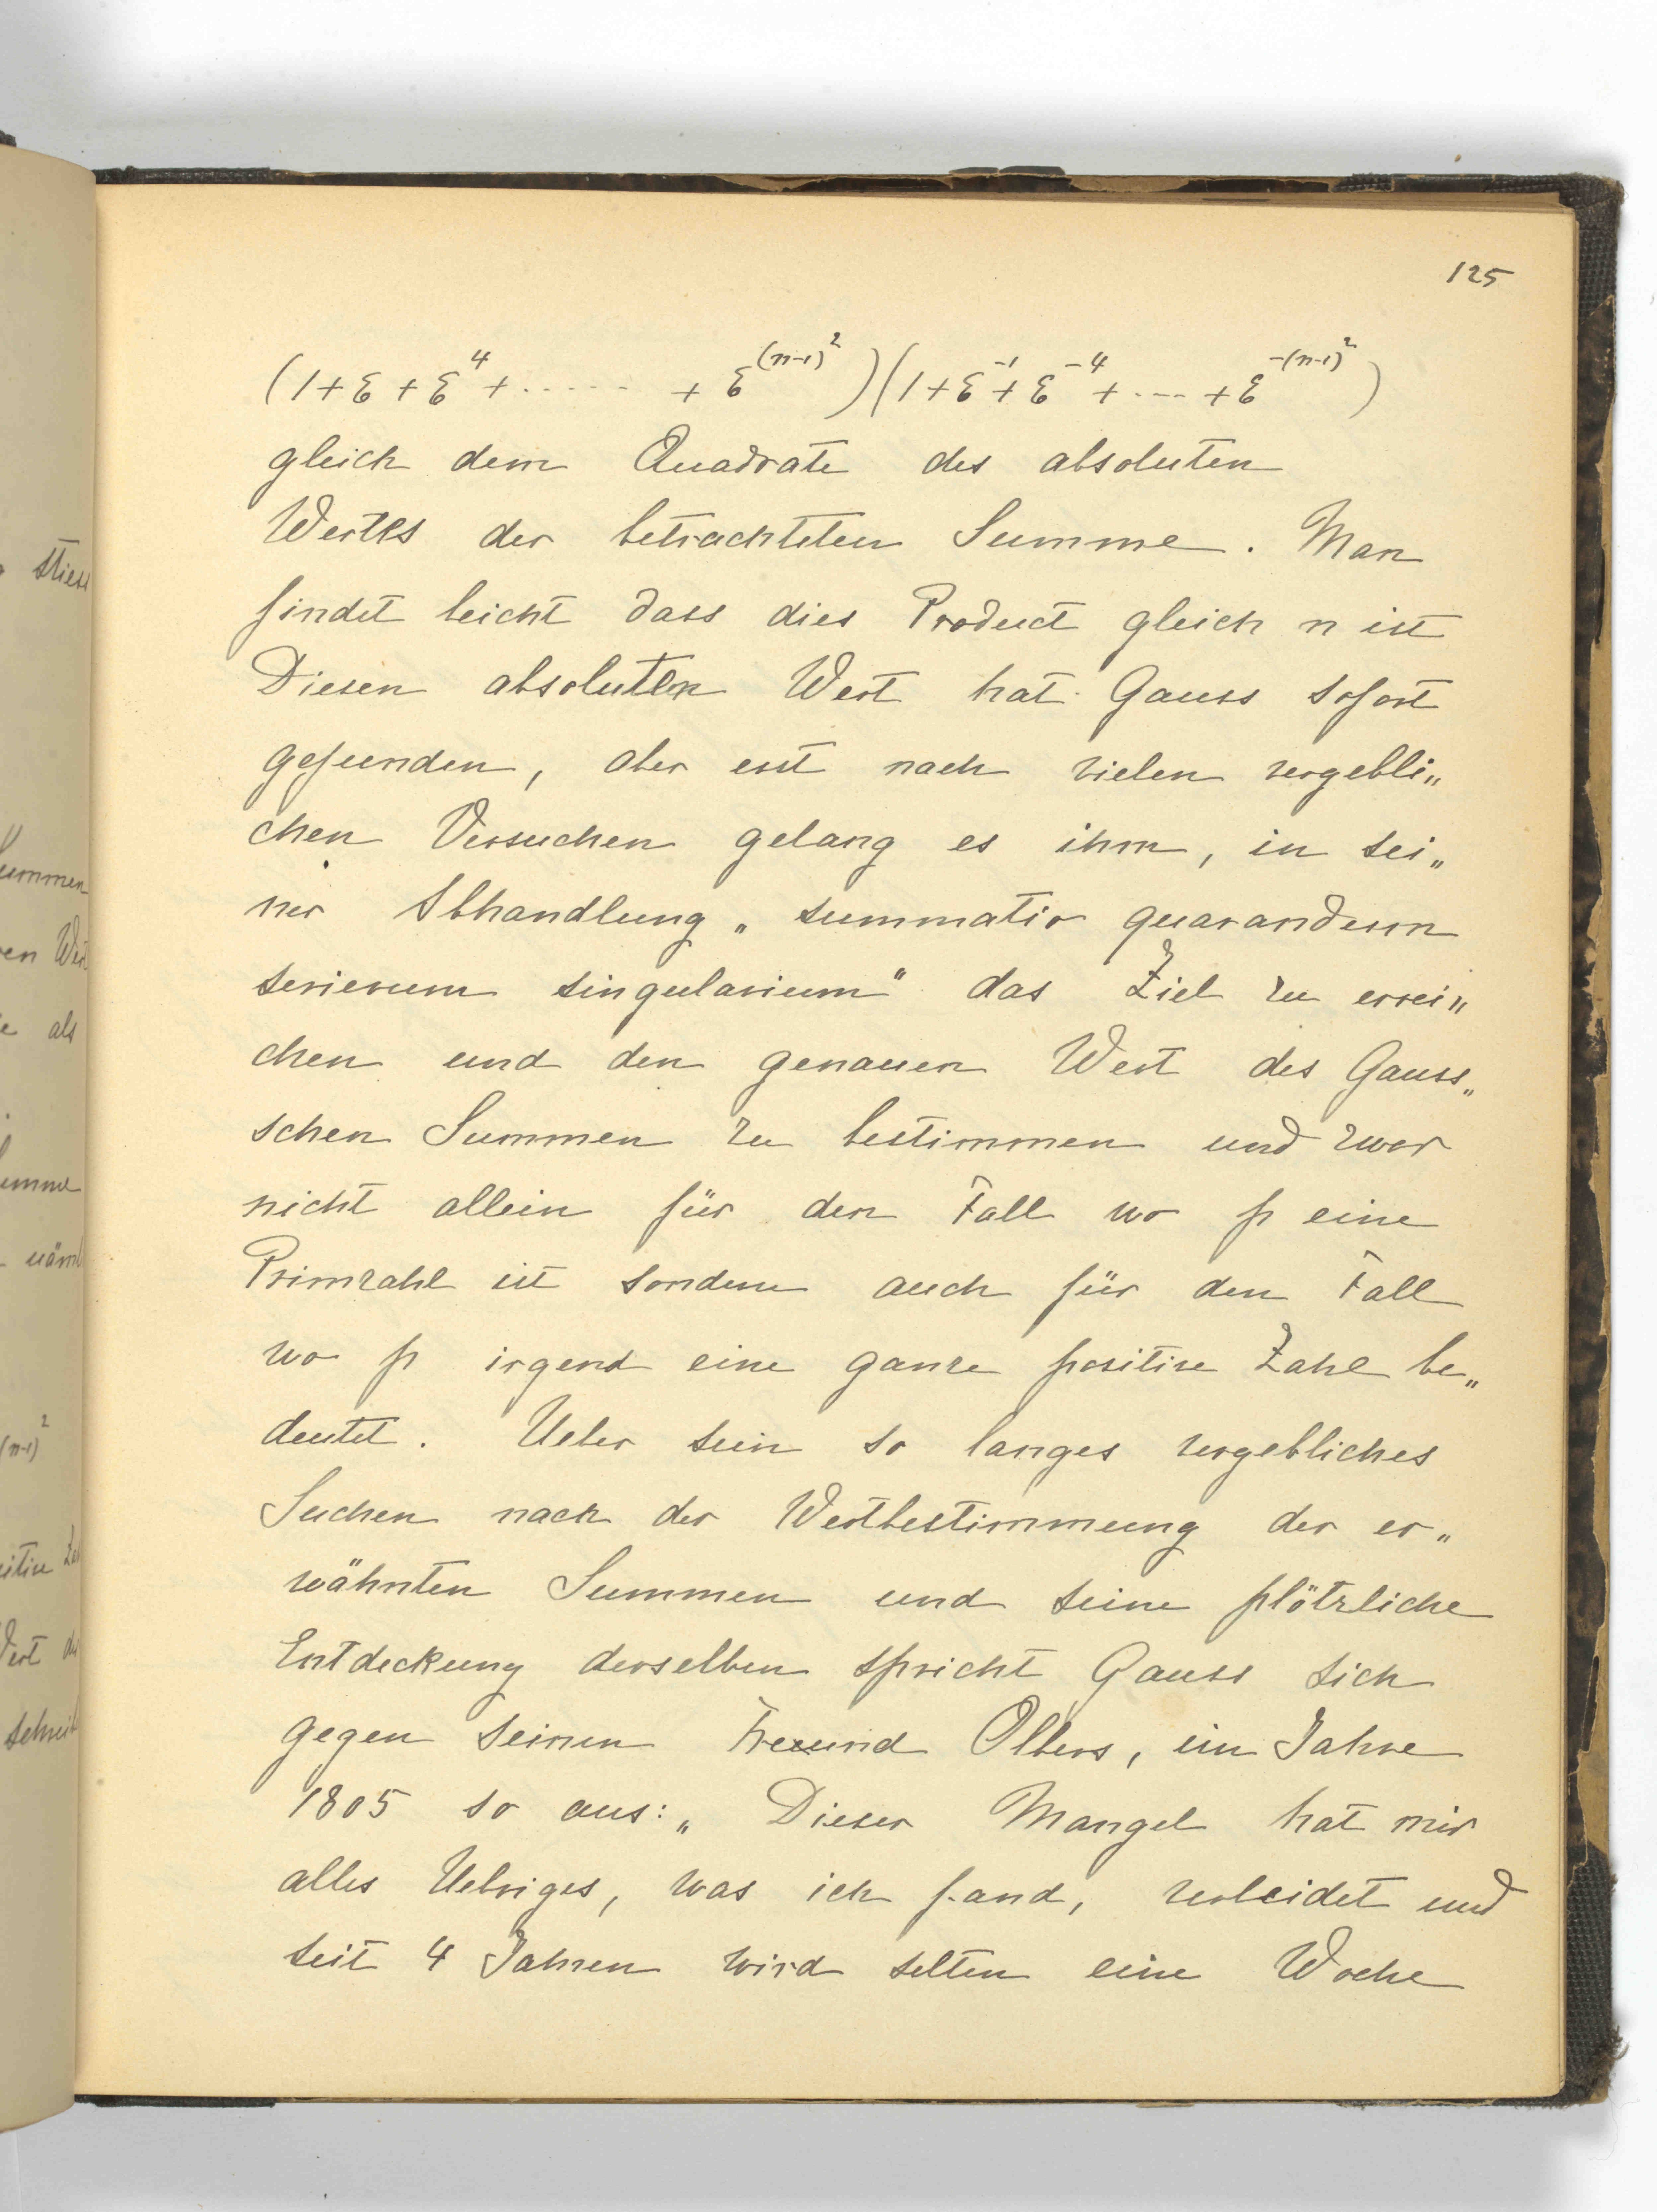 125
(1+ε+ε⁴+ ..... + ε^(n-1)²)(1+ε⁻¹+ε⁻⁴+ ... +ε^-(n-1)²)
gleich dem Quadrate des absoluten
Wertes der betrachteten Summe. Man
findet leicht dass dies Product gleich n ist
Diesen absoluten Wert hat Gauss sofort
gefunden, aber erst nach vielen vergebli„
chen Versuchen gelang es ihm, in sei„
ner Abhandlung „summatio quarandum
serierum singularium" das Ziel zu errei„
chen und den genauen Wert des Gauss„
schen Summen zu bestimmen und zwar
nicht allein für den Fall wo p eine
Primzahl ist sondern auch für den Fall
wo p irgend eine ganze positive Zahl be„
deutet. Ueber sein so langes vergebliches
Suchen nach der Wertbestimmung der er„
wähnten Summen und seine plötzliche
Entdeckung derselben spricht Gauss sich
gegen seinen Freund Olbers, im Jahre
1805 so aus: „Dieser Mangel hat mir
alles Uebriges, was ich fand, verleidet und
seit 4 Jahren wird selten eine Woche